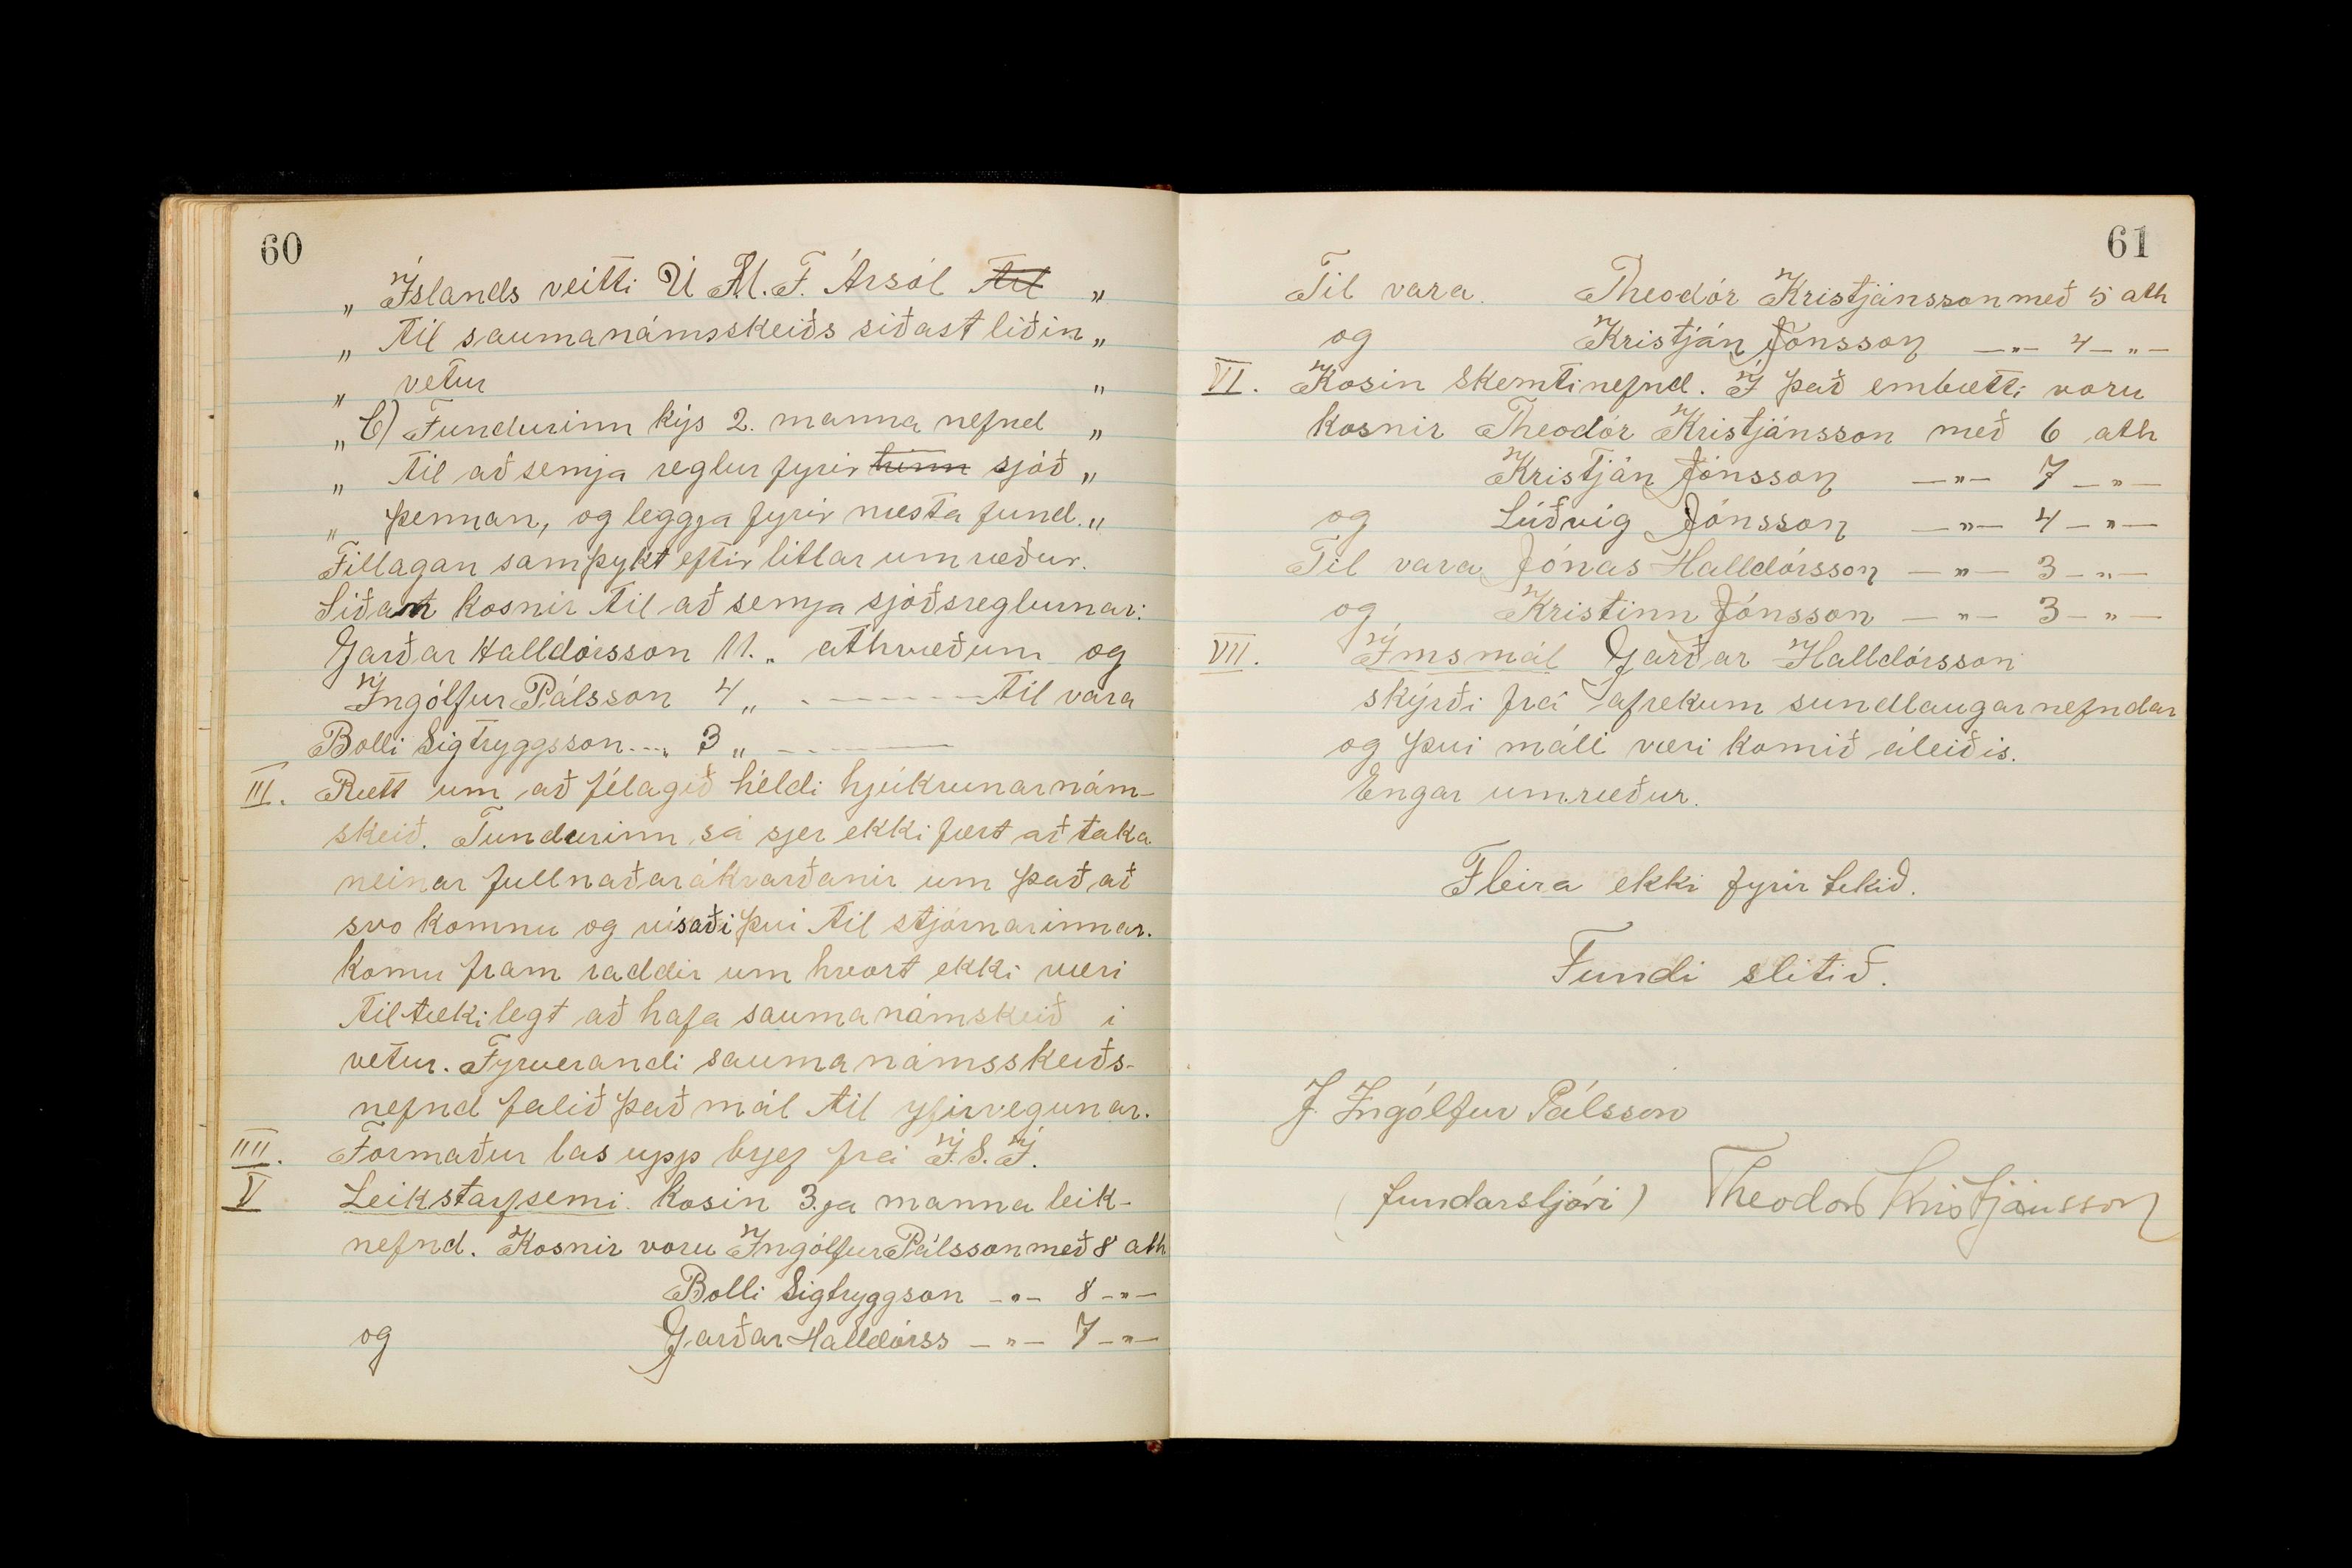 60
„ Íslands veitti U M.F. Ársól ~~til~~ „
„ til saumanámsskeiðs siðast liðin „
„ vetur „
„ C) Fundurinn kýs 2. manna nefnd „
„ til að semja reglur fyrir ~~hinn~~ sjóð „
„ þennan, og leggja fyrir næsta fund. „
Tillagan samþykt eftir litlar umræður.
Siðan kosnir til að semja sjóðsreglurnar:
Garðar Halldórsson 11. „ athvæðum og
Ingólfur Pálsson 4 „ - - - - - - - til vara
Bolli Sigtryggsson.... 3 „ - - - - - -
III. Rætt um að félagið héldi hjúkrunarnám-
skeið. Fundurinn sá sjer ekki fært að taka
neinar fullnaðarákvarðanir um það að
svo komnu og vísaði því til stjórnarinnar.
Komu fram raddir um hvort ekki væri
tiltækilegt að hafa saumanámskeið i
vetur. Fyrverandi saumanámsskeiðs-
nefnd falið það mál til yfirvegunar.
IIII. Formaður las upp brjef frá Í.S.Í.
V Leikstarfsemi. Kosin 3.ja manna leik-
nefnd. Kosnir voru Ingólfur Pálsson með 8 ath
Bolli Sigtryggson -„- 8 -„-
og Garðar Halldórss -„- 7 -„-
61
Til vara. Theodór Kristjánsson með 5 ath
og Kristján Jónsson -„- 4 -„-
VI. Kosin skemtinefnd. Í það embætti voru
kosnir Theodór Kristjánsson með 6 ath
Kristján Jónsson -„- 7 -„-
og Lúðvig Jónsson -„- 4 -„-
Til vara Jónas Halldórsson -„- 3 -„-
og Kristinn Jónsson -„- 3 -„-
VII. Ímsmál Garðar Halldórsson
skýrði frá afrekum sundlaugarnefndar
og því máli væri komið áleiðis.
Engar umræður.
Fleira ekki fyrir tekið.
Fundi slitið.
J. Ingólfur Pálsson
(fundarstjóri) Theodor Kristjánsson